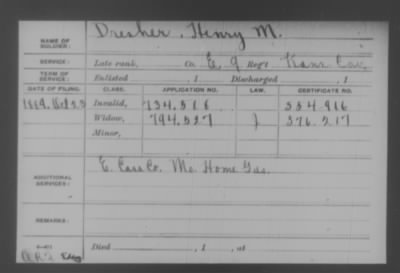 NAME OF SOLDIER: Dresher, Henry M.
SERVICE: Late rank, Co E, 9 Reg't Kans Cav.
TERM OF SERVICE: Enlisted , 1 Discharged , 1
DATE OF FILING. CLASS. APPLICATION NO. LAW. CERTIFICATE NO.
Invalid, 734.586 554.916
Widow, 794.527 J 376.217
Minor,
ADDITIONAL SERVICES: E. Cass Co. Mo Home Gds.
REMARKS:
Died , 1 , at